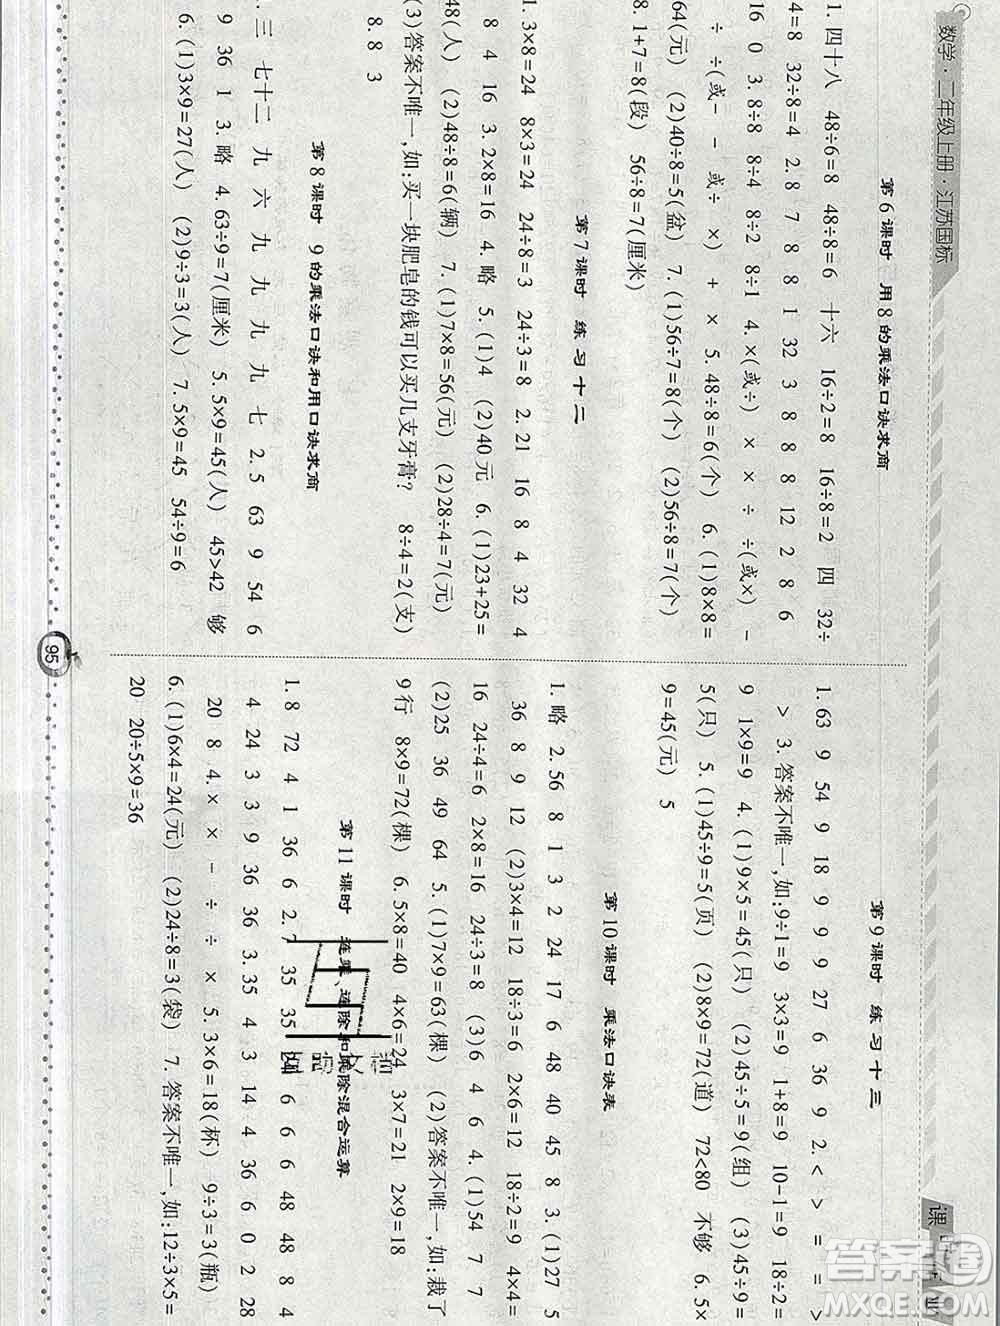 数学·二年级上册·江苏国标
第6课时 用8的乘法口诀求商
1. 四十八 48÷6=8 48÷8=6 十六 16÷2=8 16÷8=2 四 32÷
4=8 32÷8=4 2. 8 7 8 8 1 32 3 8 8 8 12 2 8 6
16 0 3. 8÷8 8÷4 8÷2 8÷1 4. ×(或÷) × × ÷ ÷(或×) -
÷ ÷(或- - 或÷ ×) + × 5. 48÷8=6(个) 6. (1)8×8=
64(元) (2)40÷8=5(盆) 7. (1)56÷7=8(个) (2)56÷8=7(个)
8. 1+7=8(段) 56÷8=7(厘米)
第7课时 练习十二
1. 3×8=24 8×3=24 24÷8=3 24÷3=8 2. 21 16 8 4 32 4
8 4 16 3. 2×8=16 4. 略 5. (1)4 (2)40元 6. (1)23+25=
48(人) (2)48÷8=6(辆) 7. (1)7×8=56(元) (2)28÷4=7(元)
(3)答案不唯一,如:买一块肥皂的钱可以买几支牙膏? 8÷4=2(支)
8. 8 3
第8课时 9的乘法口诀和用口诀求商
三 七十二 九 六 九 九 九 七 2. 5 63 9 54 6
9 36 1 3. 略 4. 63÷9=7(厘米) 5. 5×9=45(人) 45>42 够
6. (1)3×9=27(人) (2)9÷3=3(人) 7. 5×9=45 54÷9=6
第9课时 练习十三
1. 63 9 54 9 18 9 9 9 27 6 36 9 2. < > = = >
> 3. 答案不唯一,如:9÷1=9 3×3=9 1+8=9 10-1=9 18÷2=
9 1×9=9 4. (1)9×5=45(只) (2)45÷5=9(组) (3)45÷9=
5(只) 5. (1)45÷9=5(页) (2)8×9=72(道) 72<80 不够 6. 5×
9=45(元) 5
第10课时 乘法口诀表
1. 略 2. 56 8 1 3 2 24 17 6 48 40 45 8 3. (1)27 5
36 8 9 12 (2)3×4=12 18÷3=6 2×6=12 18÷2=9 4×4=
16 24÷4=6 2×8=16 24÷3=8 (3)6 4 6 4. (1)54 7 7
(2)25 36 49 64 5. (1)7×9=63(棵) (2)答案不唯一,如:栽了
9行 8×9=72(棵) 6. 5×8=40 4×6=24 3×7=21 2×9=18
第11课时 连乘、连除和乘除混合运算
1. 8 72 4 1 36 6 2. 7 35 35 6 6 48 48 8 4
4 24 3 3 9 36 36 3. 35 4 3 14 4 36 6 0 2 28
20 8 4. × × - ÷ ÷ × 5. 3×6=18(杯) 9÷3=3(瓶)
6. (1)6×4=24(元) (2)24÷8=3(袋) 7. 答案不唯一,如:12÷3×5=
20 20÷5×9=36
95
答案圈
MXQE.COM